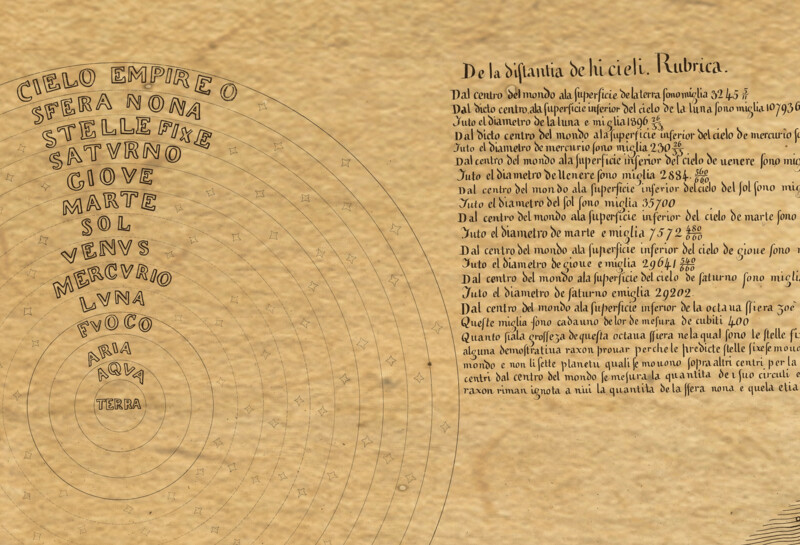 CIELO EMPIREO
SFERA NONA
STELLE FIXE
SATVRNO
GIOVE
MARTE
SOL
VENVS
MERCVRIO
LVNA
FVOCO
ARIA
AQVA
TERRA
De la distantia de hi cieli. Rubrica.
Dal centro del mondo ala superficie de la terra sono miglia 3245 5/11
Dal dicto centro ala superficie inferior del cielo de la luna sono miglia 107936
Tuto el diametro de la luna e miglia 1896 26/33
Dal dicto centro del mondo ala superficie inferior del cielo de mercurio
Tuto el diametro de mercurio sono miglia 230 26/33
Dal centro del mondo ala superficie inferior del cielo de uenere sono
Tuto el diametro de Uenere sono miglia 2884. 560/660
Dal centro del mondo ala superficie inferior del cielo del sol sono
Tuto el diametro del sol sono miglia 35700
Dal centro del mondo ala superficie inferior del cielo de marte sono
Tuto el diametro de marte e miglia 7572 480/660
Dal centro del mondo ala superficie inferior del cielo de gioue sono
Tuto el diametro de gioue e miglia 29641 540/660
Dal centro del mondo ala superficie del cielo de saturno sono
Tuto el diametro de saturno e miglia 29202
Dal centro del mondo ala superficie inferior de la octaua spera zoe
Queste miglia sono cadauno de lor de mesura de cubiti 400
Quanto sia la grosseza de questa octaua spera nela qual sono le stelle
alguna demostratiua raxon prouar perche le predicte stelle fixe se
mondo e non li sette planetu quali se mouono sopra altri centri per la
centri dal centro del mondo se mesura la quantita de i suo circuli
raxon riman ignota a nui la quantita de la spera nona e quela etia